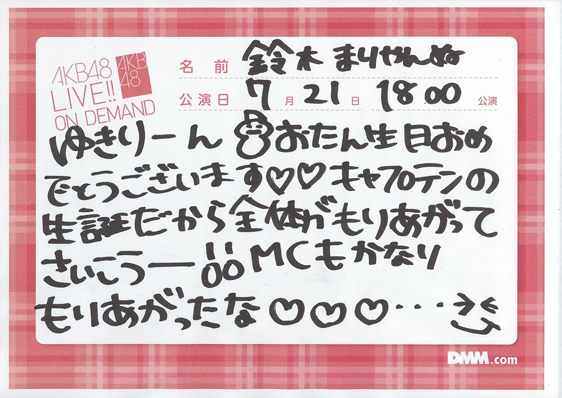 AKB48
LIVE!!
ON DEMAND
AKB
48
名前 鈴木まりやんぬ
公演日 7月21日 18:00公演
ゆきりーん おたん生日おめ
でとうございます♡♡キャプテンの
生誕だから全体がもりあがって
さいこうー!!MCもかなり
もりあがったな♡♡♡・・・
DMM.com